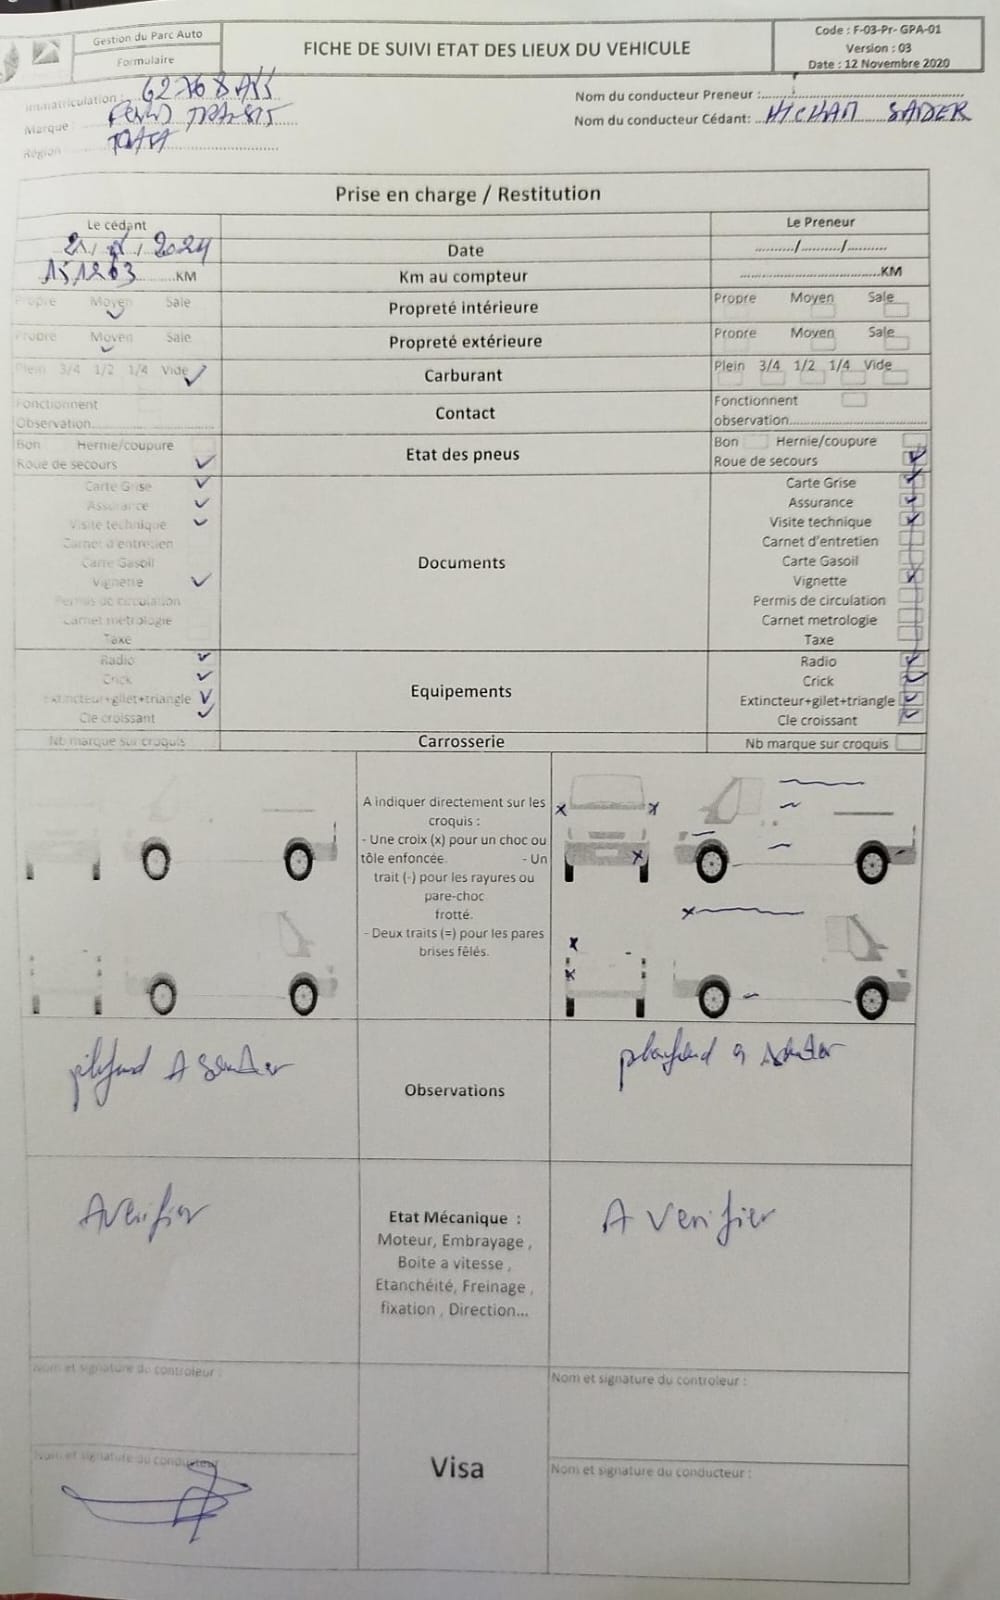 Gestion du Parc Auto
Formulaire
FICHE DE SUIVI ETAT DES LIEUX DU VEHICULE
Code : F-03-Pr- GPA-01
Version : 03
Date : 12 Novembre 2020
Immatriculation :
Marque : FORD
Région
Nom du conducteur Preneur :
Nom du conducteur Cédant: HICHAM SADER
Prise en charge / Restitution
Le cédant
Le Preneur
2024 Date ........../........../..........
KM Km au compteur KM
Propre Moyen Sale Propreté intérieure Propre Moyen Sale
Propre Moyen Sale Propreté extérieure Propre Moyen Sale
Plein 3/4 1/2 1/4 Vide Carburant Plein 3/4 1/2 1/4 Vide
Fonctionnent Contact Fonctionnent
Observation observation
Bon Hernie/coupure Etat des pneus Bon Hernie/coupure
Roue de secours Roue de secours
Carte Grise Carte Grise
Assurance Assurance
Visite technique Visite technique
Carnet d'entretien Carnet d'entretien
Carte Gasoil Documents Carte Gasoil
Vignette Vignette
Permis de circulation Permis de circulation
Carnet metrologie Carnet metrologie
Taxe Taxe
Radio Radio
Crick Equipements Crick
Extincteur+gilet+triangle Extincteur+gilet+triangle
Cle croissant Cle croissant
Nb marque sur croquis Carrosserie Nb marque sur croquis
A indiquer directement sur les
croquis :
- Une croix (x) pour un choc ou
tôle enfoncée. - Un
trait (-) pour les rayures ou
pare-choc
frotté.
- Deux traits (=) pour les pares
brises fêlés.
Observations
A verifier
A verifier
Etat Mécanique :
Moteur, Embrayage ,
Boite a vitesse ,
Etanchéité, Freinage ,
fixation , Direction...
Nom et signature du controleur :
Nom et signature du controleur :
Visa
Nom et signature du conducteur :
Nom et signature du conducteur :